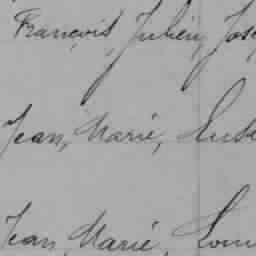 François, Julien, Jos
Jean, Marie,
Jean, Marie, Loui